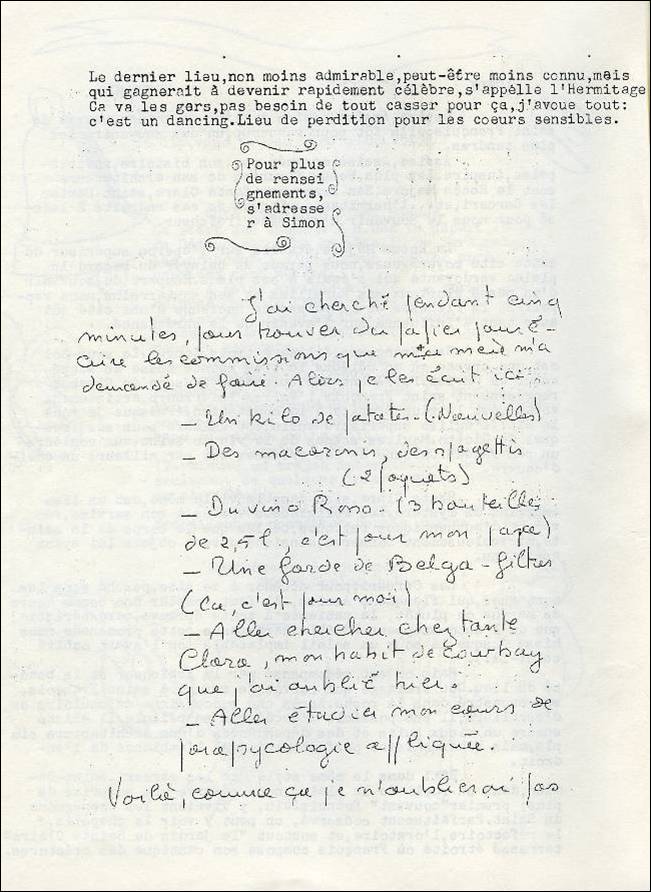 Le dernier lieu,non moins admirable,peut-être moins connu,mais
qui gagnerait à devenir rapidement célèbre,s'appèlle l'Hermitage
Ca va les gars,pas besoin de tout casser pour ça,j'avoue tout:
c'est un dancing.Lieu de perdition pour les coeurs sensibles.
Pour plus
de rensei
gnements,
s'adresse
r à Simon
J'ai cherché pendant cinq
minutes, pour trouver du papier pour é-
crire les commissions que ma mère m'a
demandé de faire. Alors je les écrit ici.
- Un kilo de patates - (Nouvelles)
- Des macaronis, des spagettis
(2 paquets)
- Du vino Rosso - (3 bouteilles
de 2,5 l., c'est pour mon papa)
- Une farde de Belga - filtres
(Ca, c'est pour moi)
- Aller chercher chez tante
Clara, mon habit de cowboy
que j'ai oublié hier.
- Aller étudier mon cours de
parapsycologie appliquée.
Voilà, comme ça je n'oublierai pas